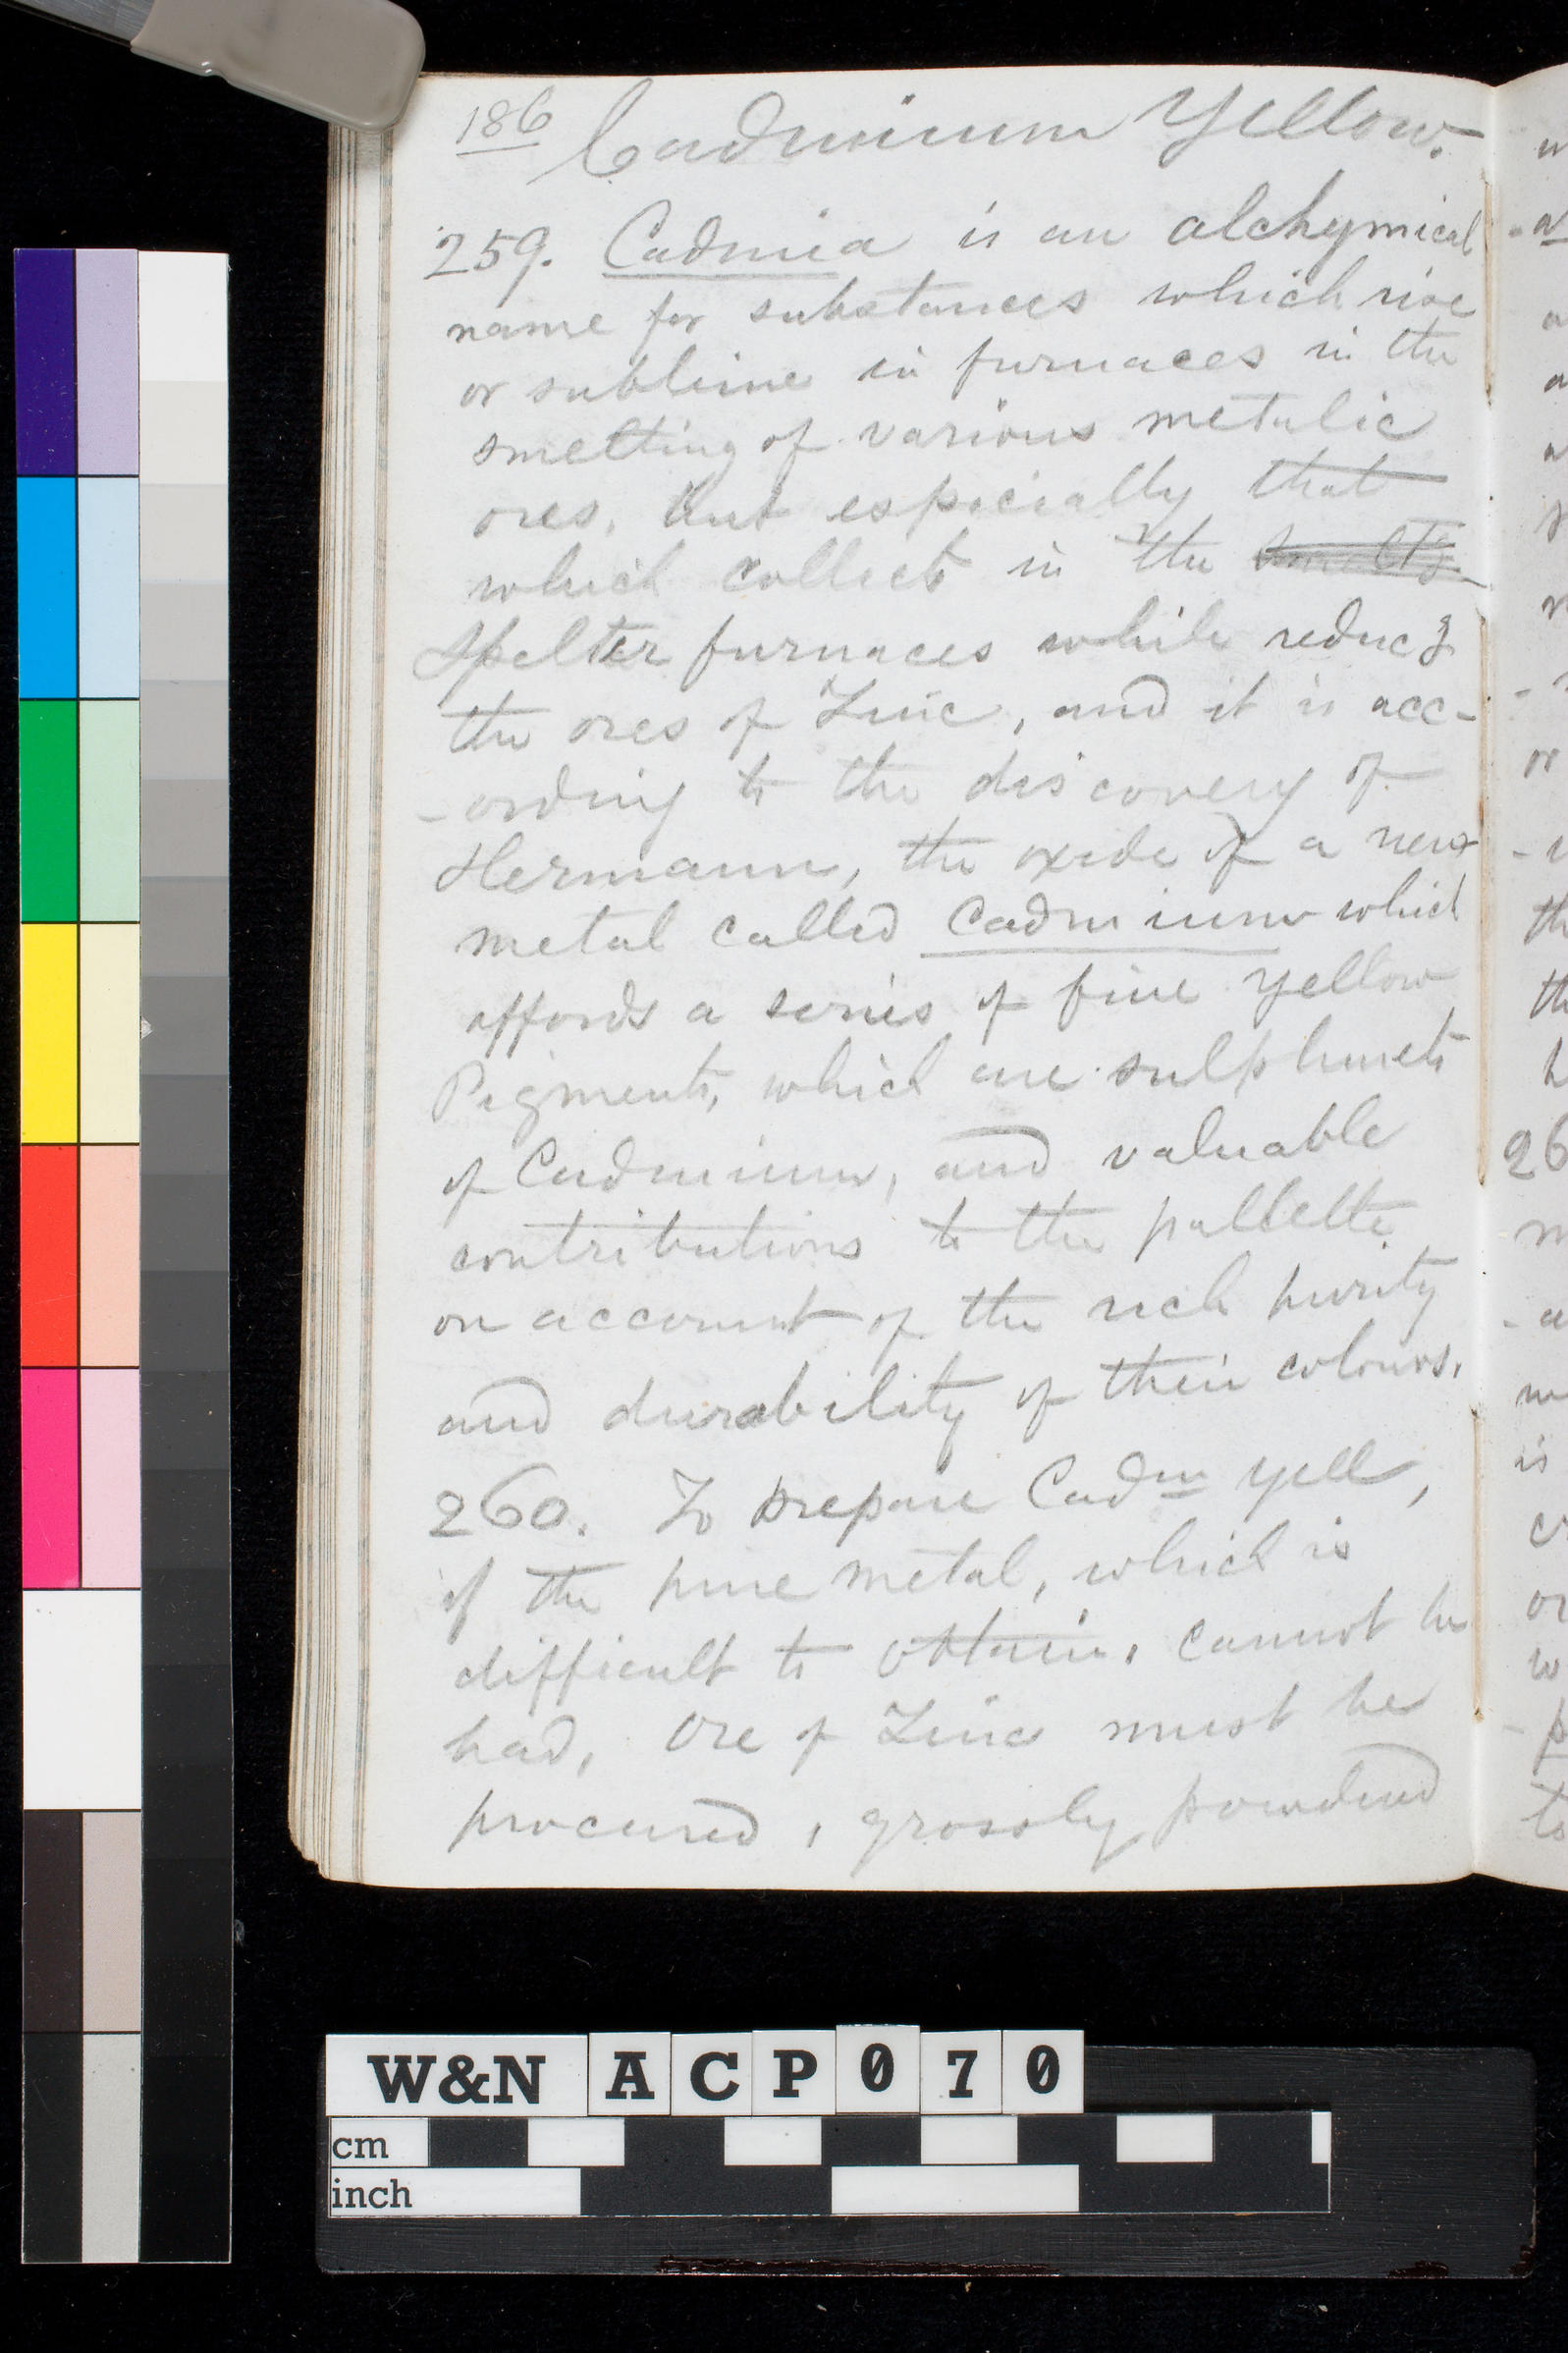 186 Cadmium Yellow.
259. Cadmia is an alchymical
name for substances which rise
or sublime in furnaces in the
smelting of various metalic
ores, but especially that
which collects in the
Spelter furnaces while reducg
the ores of Zinc, and it is acc-
-ording to the discovery of
Hermann, the oxide of a new
metal called Cadmium which
affords a series of fine yellow
Pigments, which are sulphurets
of Cadmium, and valuable
contributions to the pallette
on account of the rich purity
and durability of their colours.
260. To prepare Cadm yell,
if the pure metal, which is
difficult to obtain, cannot be
had, Ore of Zinc must be
procured, grossly powdered
W&N ACP070
cm
inch